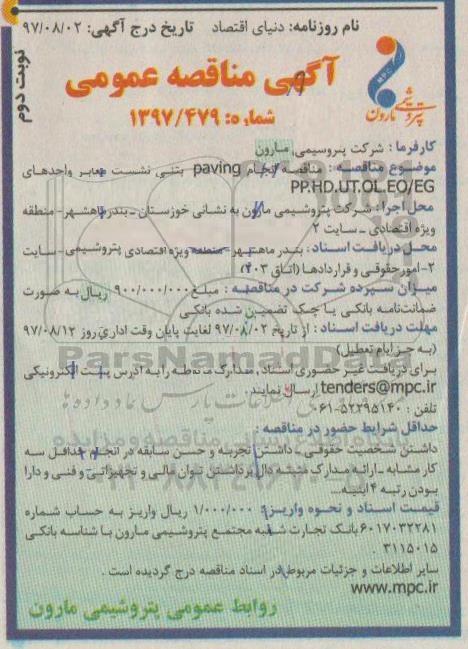 نام روزنامه: دنیای اقتصاد تاریخ درج آگهی: ۹۷/۰۸/۰۲
نوبت دوم
آگهی مناقصه عمومی
شماره: ۱۳۹۷/۴۷۹
MPC
پتروشیمی مارون
کارفرما: شرکت پتروسیمی مارون
موضوع مناقصه: مناقصه انجام paving بتنی نشست معابر واحدهای
PP.HD.UT.OL.EO/EG
محل اجرا: شرکت پتروشیمی مارون به نشانی خوزستان ـ بندر ماهشهر- منطقه
ویژه اقتصادی ـ سایت ۲
محل دریافت اسناد: بندر ماهشهر -منطقه ویژه اقتصادی پتروشیمی- سایت
۲-امور حقوقی و قراردادها (اتاق ۲۰۳)
میزان سپرده شرکت در مناقصه: مبلغ ۹۰۰/۰۰۰/۰۰۰ ریال به صورت
ضمانت‌نامه بانکی یا چک تضمین شده بانکی
مهلت دریافت اسناد: از تاریخ ۹۷/۰۸/۰۲ لغایت پایان وقت اداری روز ۹۷/۰۸/۱۲
(به جز ایام تعطیل)
برای دریافت غیر حضوری اسناد، مدارک مربوطه را به آدرس پست الکترونیکی
tenders@mpc.ir ارسال نمایند.
تلفن: ۵۲۲۹۵۱۴۰-۰۶۱
حداقل شرایط حضور در مناقصه:
داشتن شخصیت حقوقی ـ داشتن تجربه و حسن سابقه در انجام حداقل سه
کار مشابه ـ ارائه مدارک مثبته دال بر داشتن توان مالی و تجهیزاتی و فنی و دارا
بودن رتبه ۴ ابنیه...
قیمت اسناد و نحوه واریز: ۱/۰۰۰/۰۰۰ ریال واریز به حساب شماره
۶۰۱۷۰۳۲۲۸۱ بانک تجارت شعبه مجتمع پتروشیمی مارون با شناسه بانکی
۳۱۱۵۰۱۵ .
سایر اطلاعات و جزئیات مربوط در اسناد مناقصه درج گردیده است .
www.mpc.ir
روابط عمومی پتروشیمی مارون
ParsNamadData